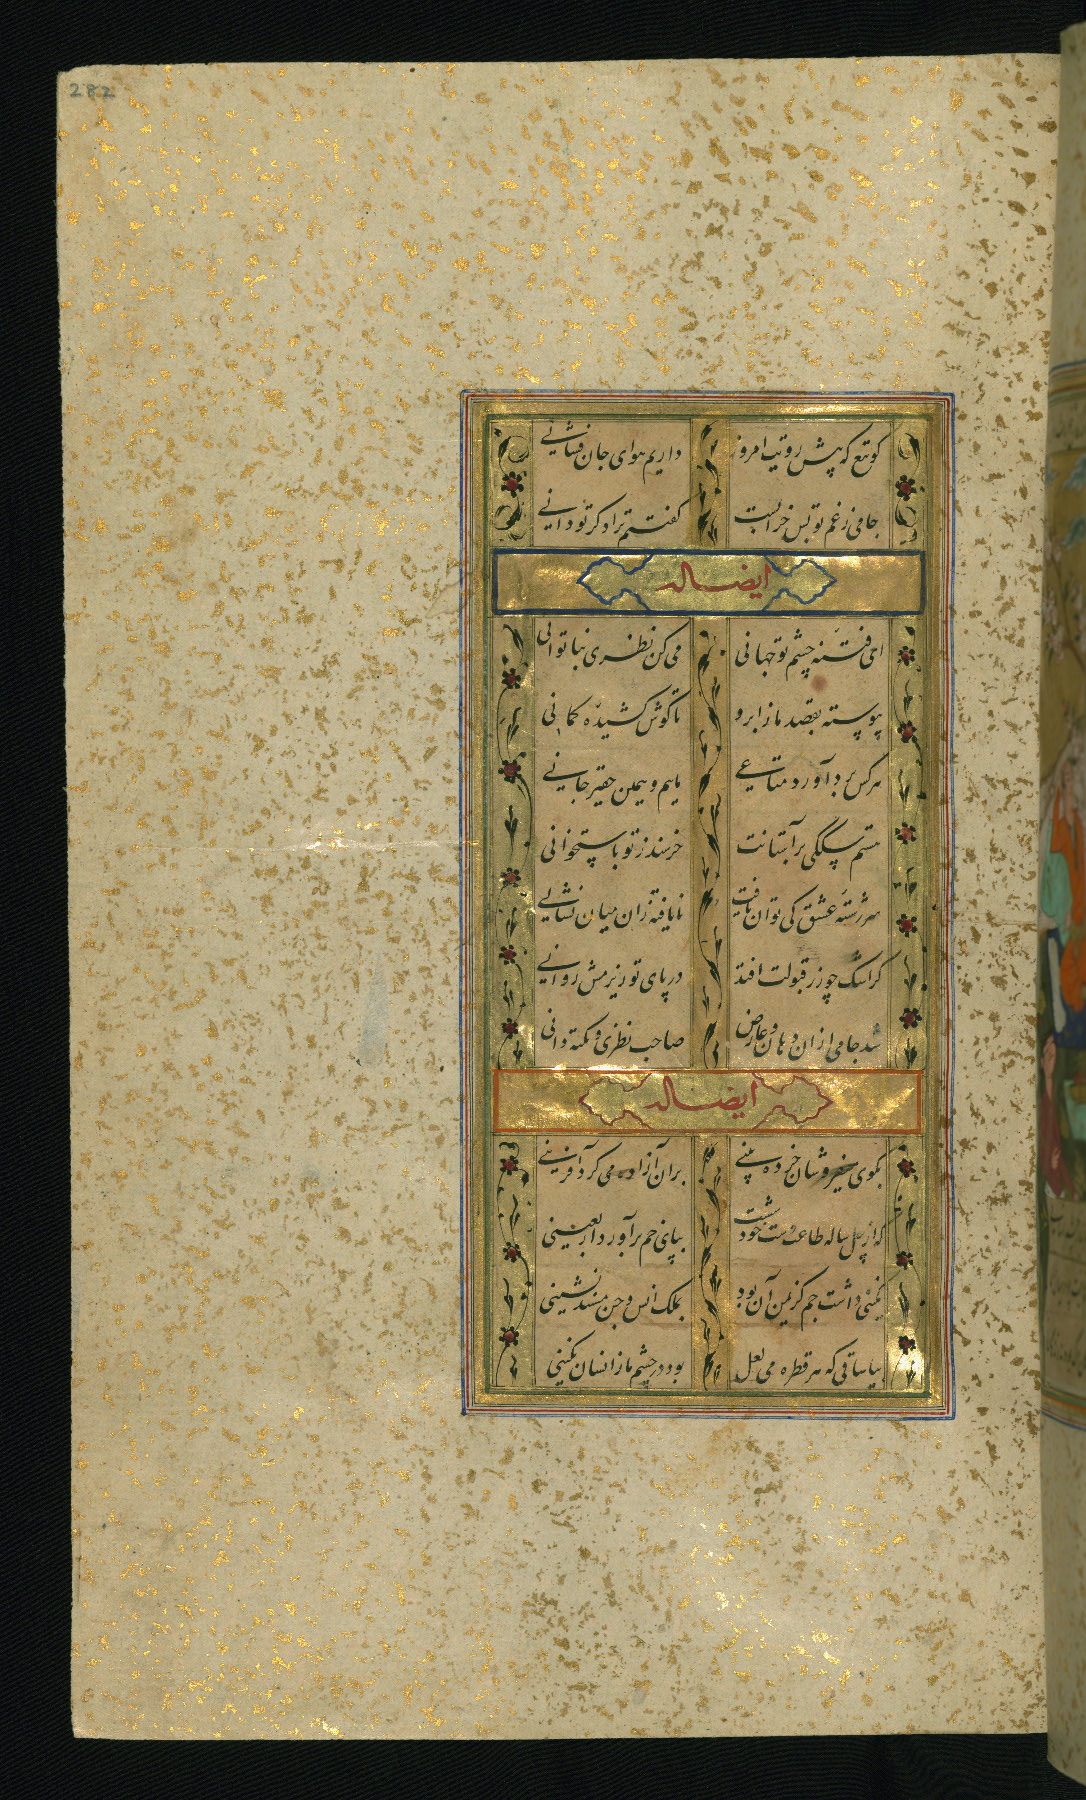 282
کو تیغ که پیش رویت امروز داریم هوای جان فشانی
جامی ز غم تو بس خرابست گفتیم ترا دگر تو دانی
ایضاله
ای فتنه چشم تو جهانی می کن نظری بناتوانی
پیوسته بقصد ما ز ابرو تا گوش کشیده کمانی
هر کس برد آورد متاعی ماییم و همین حقیر جانی
هستم سگکی بر آستانت خرسند ز تو باستخوانی
سر رشته عشق کی توان یافت نایافته زان میان نشانی
گر اشک چو زر قبولت افتد در پای تو ریزمش روانی
شد جامی ازان دهان و عارض صاحب نظری و نکته دانی
ایضاله
بکوی میفروشان خرده بینی بران آزاده می کرد آفرینی
که از چل ساله طاعت دست خود شست بپای خم برآورد اربعینی
نگینی داشت جم کز یمن آن بود بملک انس و جن مسند نشینی
بیا ساقی که هر قطره می لعل بود در چشم ما زانسان نگینی